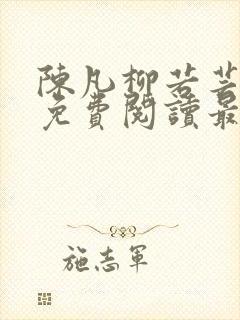 陳凡柳若若
免費閱讀最
施志軍